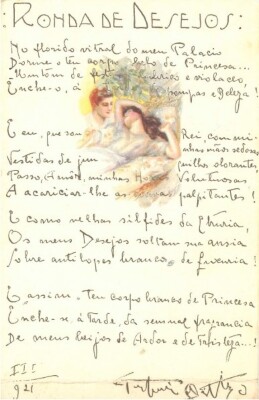 :RONDA DE DESEJOS:
No florido vitral do meu Palacio
Dorme o teu corpo belo de Princesa...
Um tom de festa e violaceo,
Enche-o, á pompas e Beleza!
E eu, que sou Rei, com minhas mãos sedosas
Vestidas de junquilhos olorantes,
Passo, Amôr, minhas Voluptuosas
A acariciar-lhe as palpitantes!
E como velhas silfides da Etruria,
Os meus Desejos soltam sua ansia
Sobre antilopes brancos de luxuria!
E assim o teu corpo branco de Princesa
Enche-se, á tarde, da sensual fragrancia
De meus beijos de Ardor e de tristeza...!
III
921